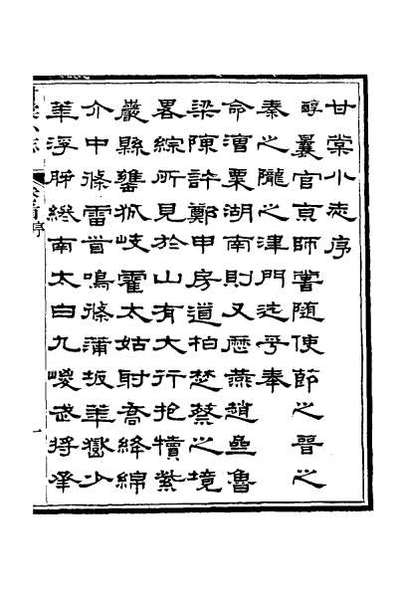 甘棠小志序
醇曩官京師嘗隨使節之晉之
秦之隴之津門迄乎奉
命漕粟湖南則又歷燕趙亝魯
梁陳許鄭申房道柏楚蔡之境
畧綜所見於山有大行抱犢紫
巖縣甕狐岐霍太姑射喬絳綿
介中條雷首鳴條蒲坂華嶽少
華浮肺終南太白九嵕武將
甘棠小志 卷首序 一